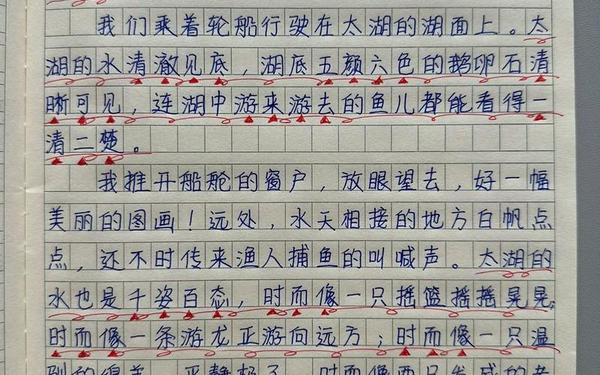 我们乘着轮船行驶在太湖的湖面上。太
湖的水清澈见底，湖底五颜六色的鹅卵石清
晰可见，连湖中游来游去的鱼儿都能看得一
清二楚。
我推开船舱的窗户，放眼望去，好一幅
美丽的图画！远处，水天相接的地方白帆点
点，还不时传来渔人捕鱼的叫喊声。太湖的
水也是千姿百态，时而像一只摇篮摇摇晃晃，
时而像一条游龙正游向远方；时而像一只温